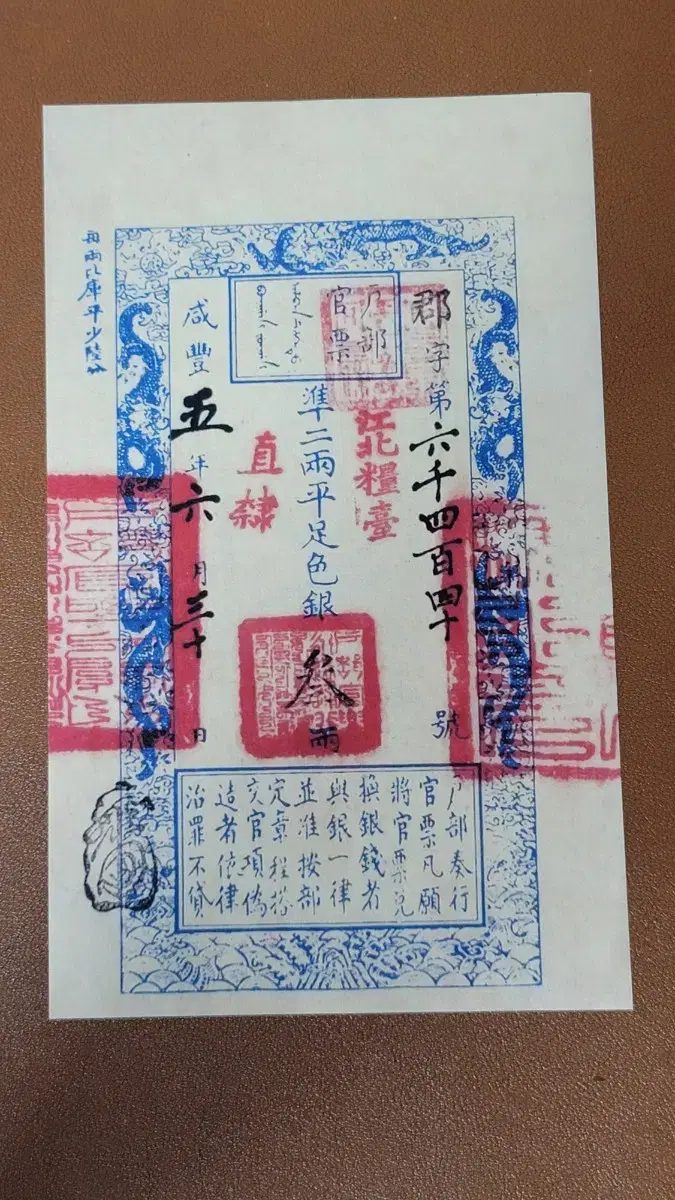 戶部
官票
郡字第六千四百四十號
江北糧臺
準二兩平足色銀叁兩
直隸
咸豐五年六月三十日
每兩比庫平少陸分
戶部奏行
官票凡願
將官票兌
換銀錢者
與銀一律
並准按部
定章程搭
交官項偽
造者依律
治罪不貸